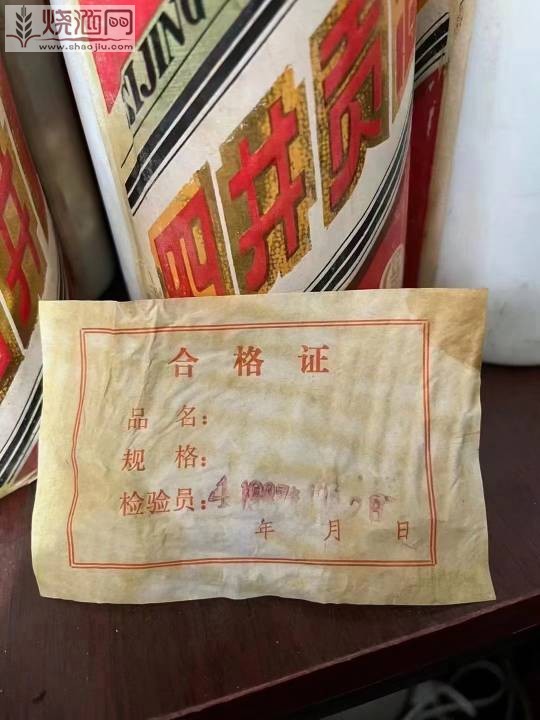 烧酒网
www.shaojiu.com
IJING
四井贡
合格证
品名：
规格：
检验员：4
年 月 日